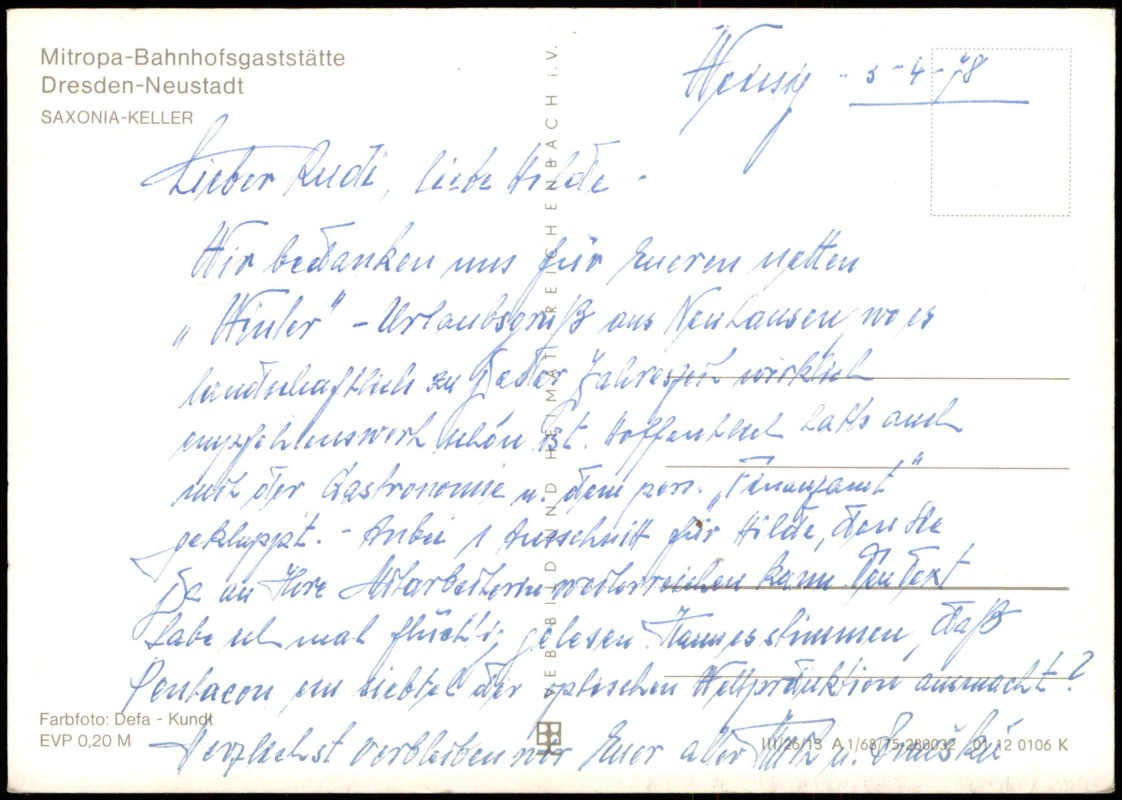 Mitropa-Bahnhofsgaststätte
Dresden-Neustadt
SAXONIA-KELLER
5-4-78
Lieber Rudi, liebe Hilde -
Wir bedanken uns für Eueren netten
„Winter" - Urlaubsgruß aus Neuhausen, wo es
landschaftlich zu jeder Jahreszeit wirklich
empfehlenswert schön ist. Hoffentlich hat's auch
mit der Gastronomie u. dem pers. „Finanzamt"
geklappt. - Anbei 1 Ausschnitt für Hilde, den sie
ja an Ihre Mitarbeiterin weiterreichen kann. Den Text
habe ich mal flüchtig gelesen. Kann es stimmen, daß
Pentacon ein siebtel der optischen Weltproduktion ausmacht?
Herzlichst verbleiben wir Euer alter u.
VEB BILD UND HEIMAT REICHENBACH i. V.
Farbfoto: Defa - Kundt
EVP 0,20 M
III/26/13 A 1/68/75-280032 01 12 0106 K